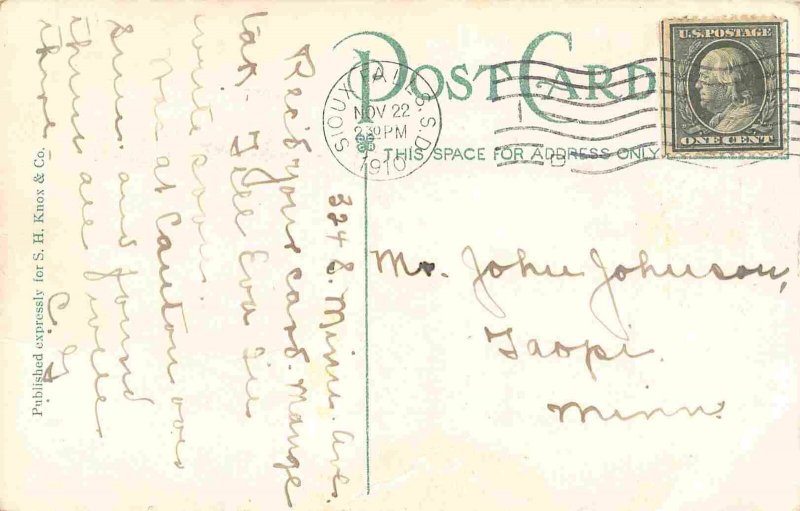 POST CARD
THIS SPACE FOR ADDRESS ONLY
SIOUX FALLS, S.D.
NOV 22
2 30 PM
1910
U.S. POSTAGE
ONE CENT
Mr. John Johnson,
Taopi.
Minn.
324 S. Minn. Ave.
Rec'd your card. Mange
tak. I
write soon.
Was at Canton over
Sun. and found
them all well
there.
C. G
Published expressly for S. H. Knox & Co.